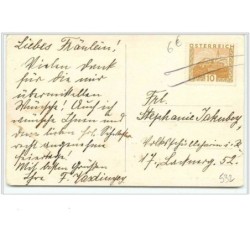 Liebes Fräulein!
Vielen Dank
für die mir
übermittelten
Wünsche! Auch ich
wünsche Ihnen und
recht angenehme
Feiertage!
Mit besten Grüßen
Ihre F.
6€
ÖSTERREICH
10
Frl.
Stephanie
Volksschullehrerin i. R.
52.
592